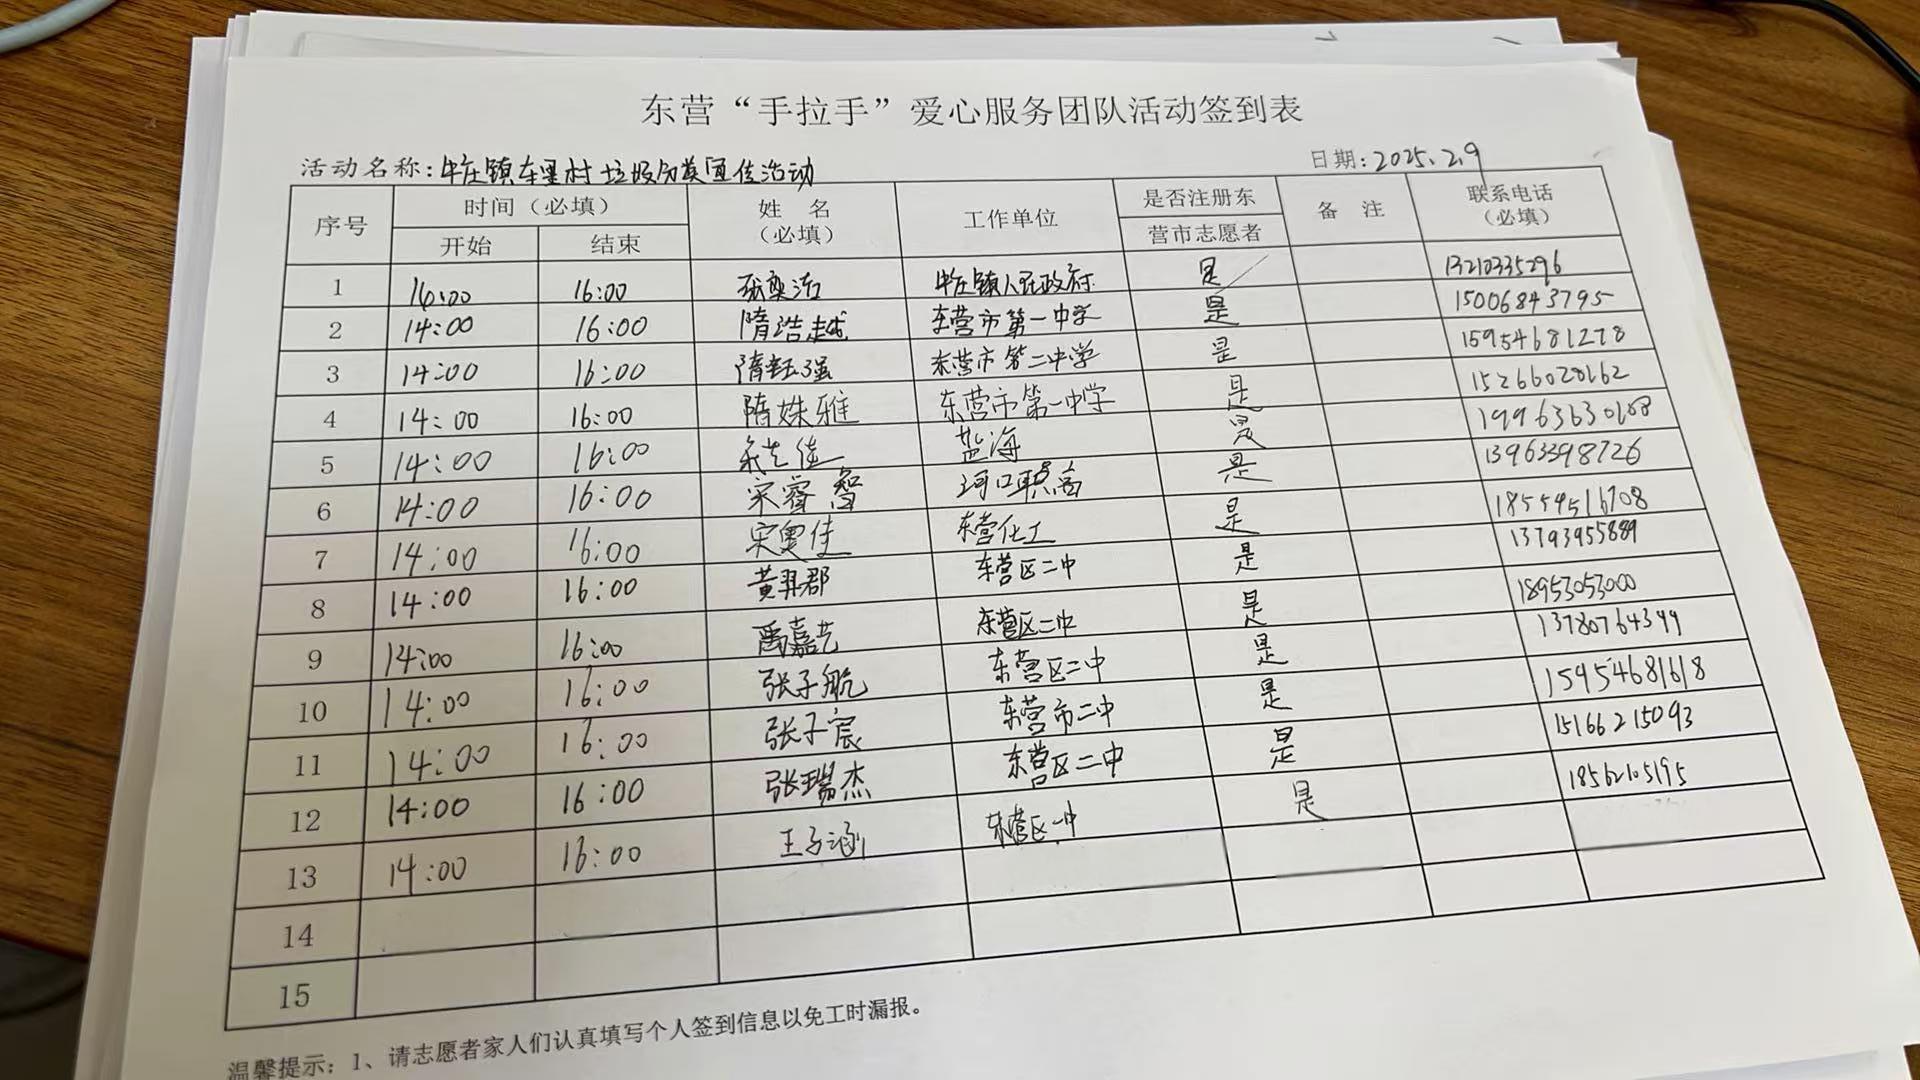 东营“手拉手”爱心服务团队活动签到表
活动名称:牛庄镇车里村垃圾分类宣传活动 日期:2025.2.9
序号 时间(必填) 姓 名(必填) 工作单位 是否注册东营市志愿者 备 注 联系电话(必填)
开始 结束
1 14:00 16:00 牛庄镇人民政府 是 13210335296
2 14:00 16:00 隋浩越 东营市第一中学 是 15006843795
3 14:00 16:00 隋钰强 东营市第二中学 是 15954681278
4 14:00 16:00 隋姝雅 东营市第一中学 是 15266020162
5 14:00 16:00 盐海 是 19963630168
6 14:00 16:00 宋睿智 河口职高 是 13963398726
7 14:00 16:00 宋雯佳 东营化工 是 18554516708
8 14:00 16:00 黄羿郡 东营区二中 是 13793955889
9 14:00 16:00 禹嘉艺 东营区二中 是 18953053000
10 14:00 16:00 张子航 东营区二中 是 13780764399
11 14:00 16:00 张子宸 东营市二中 是 15954681618
12 14:00 16:00 张瑞杰 东营区二中 是 15166215093
13 14:00 16:00 王子涵 东营区一中 是 18562105195
14
15
温馨提示:1、请志愿者家人们认真填写个人签到信息以免工时漏报。